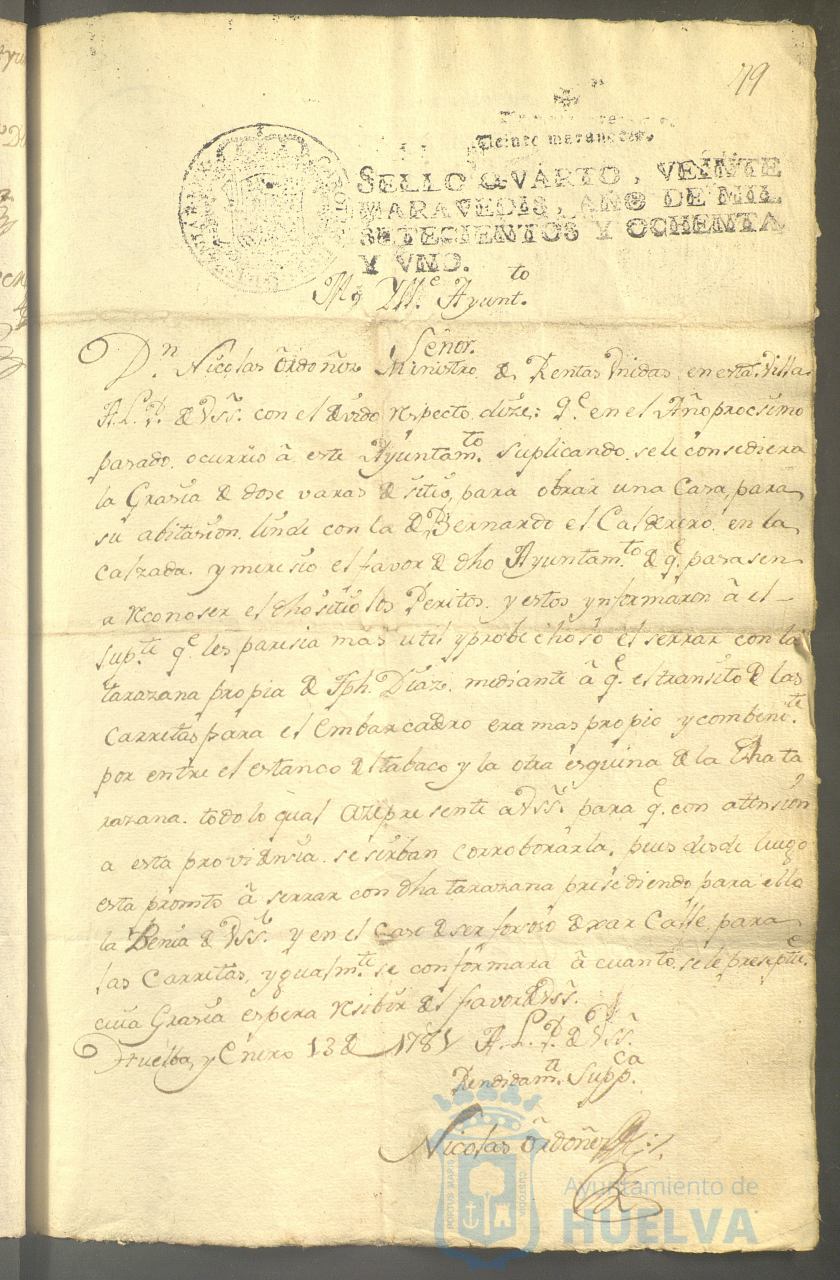 79
Veinte maravedis.
SELLO QVARTO, VEINTE
MARAVEDIS, AÑO DE MIL
SETECIENTOS Y OCHENTA
Y VNO.
M.y Yll.e Ayunt.to
Señor.
D.n Nicolas Ordoñez Ministro de Rentas Vnidas en esta Villa
A.L.P. de V.SS. con el devido respecto dize: q.e en el Año procsimo
pasado ocurrio â este Ayuntam.to suplicando se le consediera
la Grasia de dose varas de sitio, para obrar una Casa, para
su abitasion linde con la de Bernardo el Calderero en la
Calzada. y meresio el favor de dho Ayuntam.to de q.e pasasen
a reconoser el dho sitio los Peritos. y estos ynformaron â el
sup.te q.e les paresia mas util y probechoso el serrar con la
tarazana propia de Jph. Diaz. mediante â q.e el transito de las
Carretas para el embarcadero era mas propio y combeni.te
por entre el estanco del tabaco y la otra esquina de la dha ta
razana. todo lo qual asepresente a V.SS. para q.e con atension
a esta providensia se sirban corroborarla, pues desde luego
esta promto â serrar con dha tarazana presediendo para ello
la Benia de V.SS. y en el caso de ser forsoso dexar Calle para
las Carretas, ygualm.te se conformara â cuanto se le presepte.
cuia Grasia espera resibir del favor de V.SS.
Huelba, y Enero 13 de 1781 A.L.P. de V.SS.
Rendidam.te Supp.ca
Nicolas Ordoñez
PORTUS MARIS
CUSTODIA
Ayuntamiento de
HUELVA